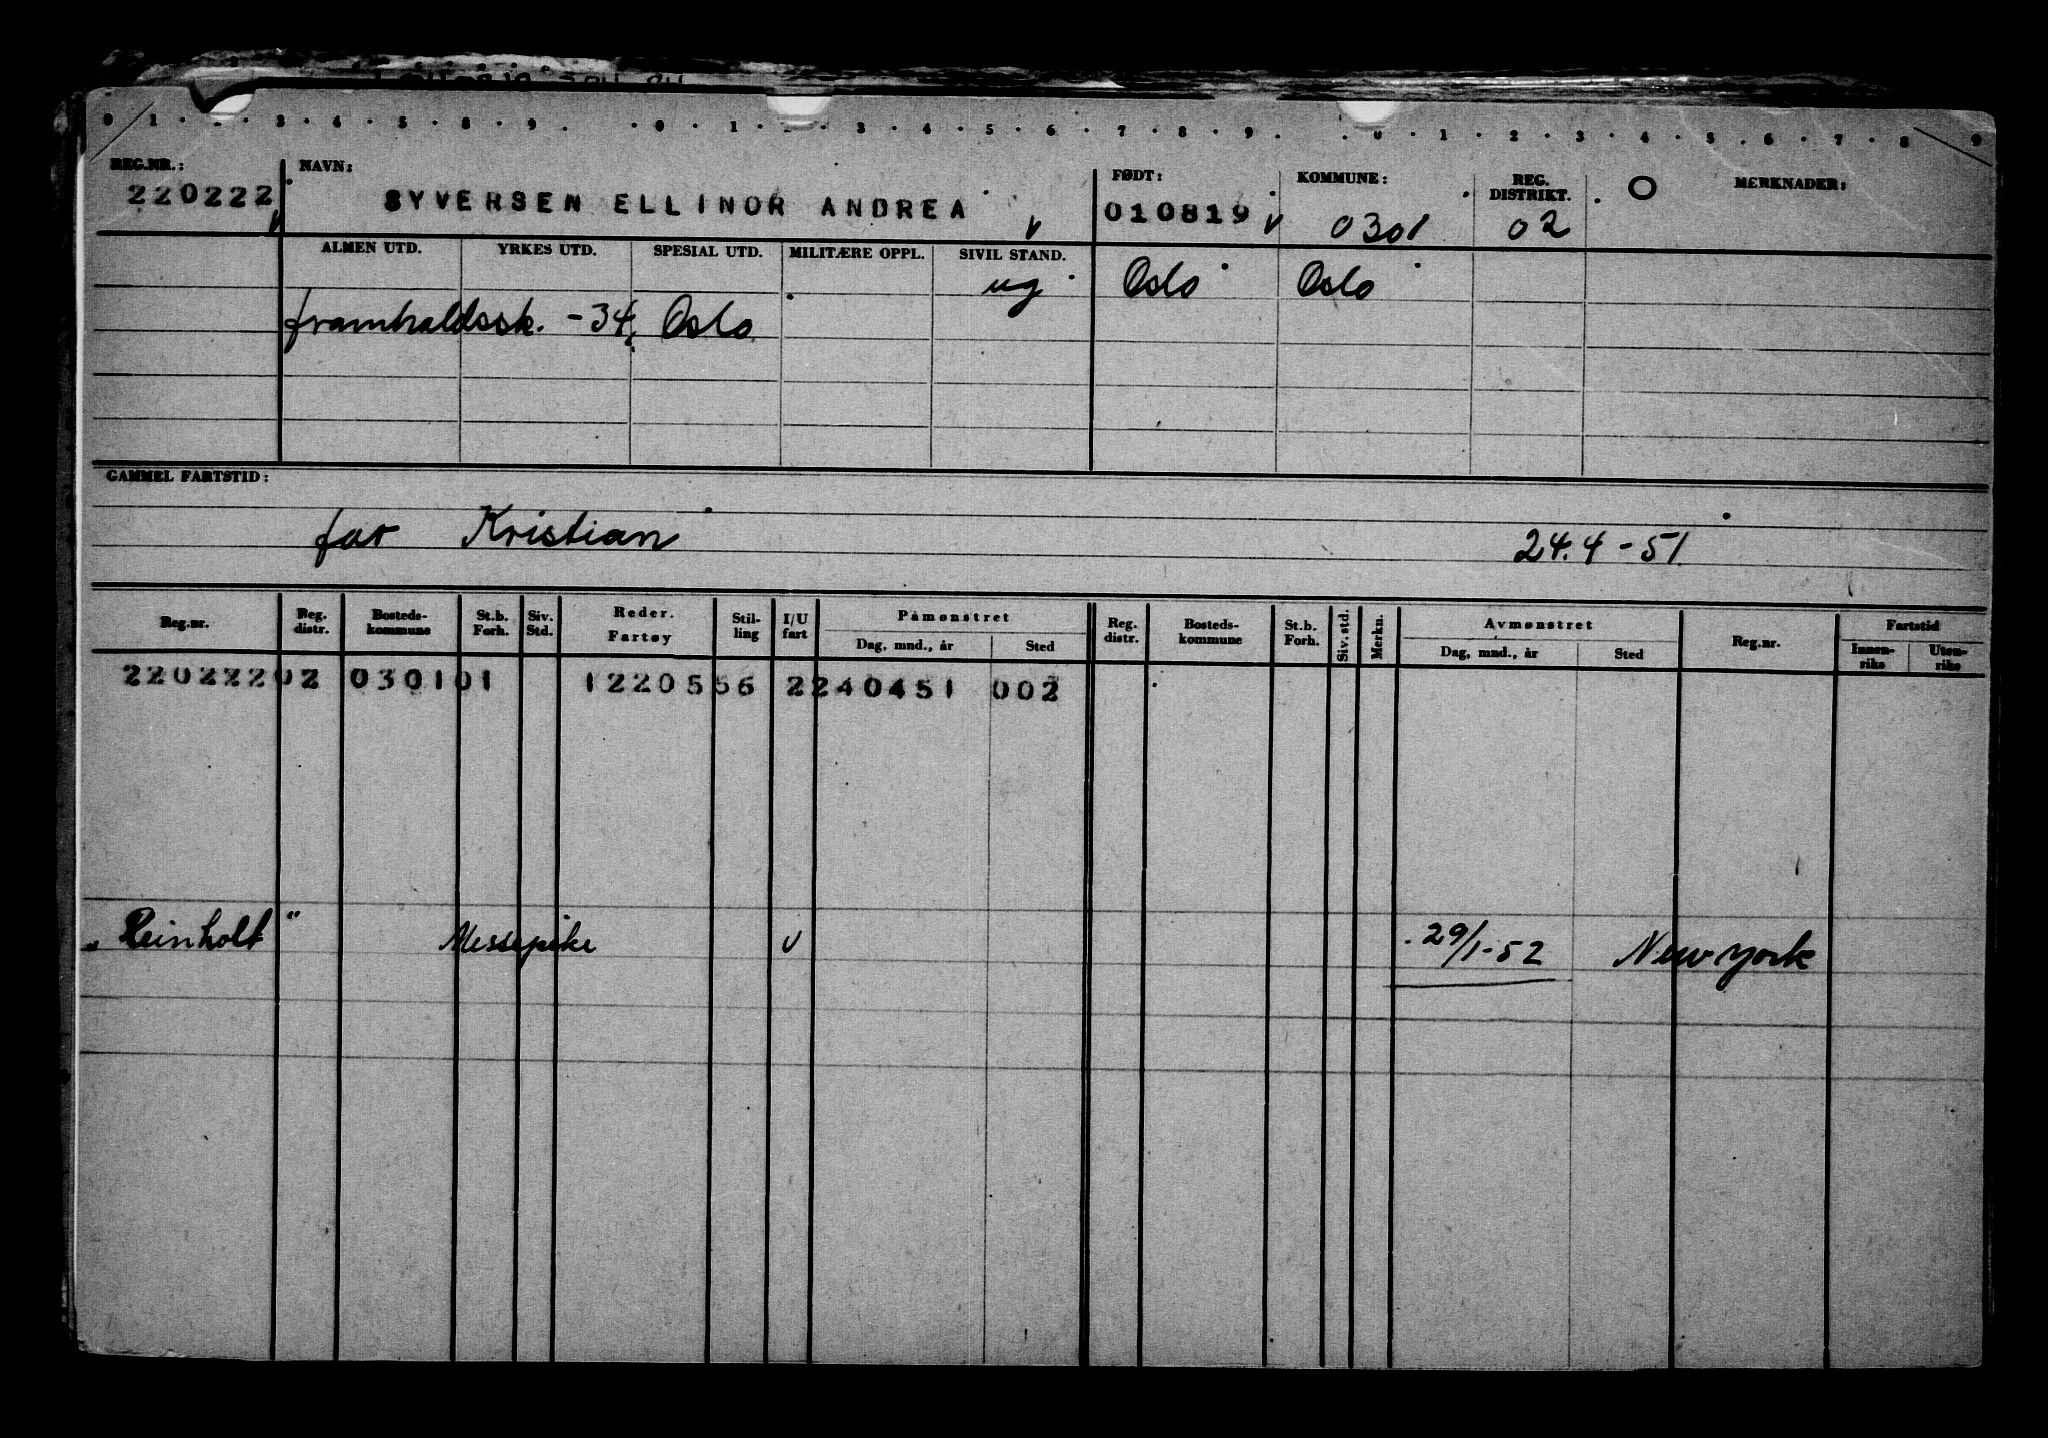 0 1 · · 3 · 4 · 5 · 8 · 9 · · 0 · 1 · · 3 · 4 · 5 · 6 · 7 · 8 · 9 · · 0 · 1 · 2 · 3 · 4 · 5 · 6 · 7 · 8 · 9
REG.NR.: NAVN: FØDT: KOMMUNE: REG. DISTRIKT. O MERKNADER:
220222 SYVERSEN ELLINOR ANDREA 010819 0301 02
ALMEN UTD. YRKES UTD. SPESIAL UTD. MILITÆRE OPPL. SIVIL STAND.
ug Oslo Oslo
framhaldssk. -34, Oslo
GAMMEL FARTSTID:
far Kristian 24.4-51.
Reg.nr. Reg. distr. Bosteds-kommune St.b. Forh. Siv. Std. Reder. Fartøy Stil-ling I/U fart Påmønstret Dag, mnd., år Sted Reg. distr. Bosteds-kommune St.b. Forh. Siv. std. Merkn. Avmønstret Dag, mnd., år Sted Reg.nr. Fartstid Innen-riks Uten-riks
22022202 030101 1220556 2240451 002
„Reinholt" Messepike v 29/1-52 New York